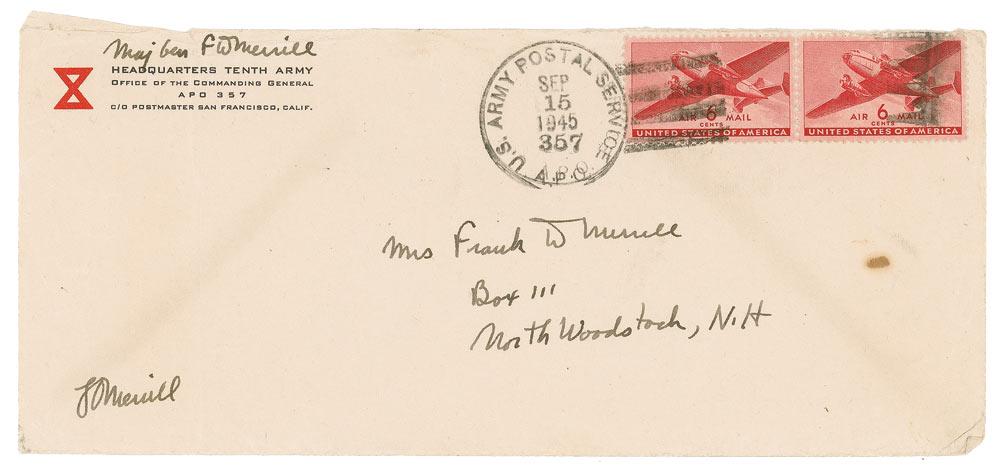 Maj Gen F W Merrill
HEADQUARTERS TENTH ARMY
OFFICE OF THE COMMANDING GENERAL
APO 357
C/O POSTMASTER SAN FRANCISCO, CALIF.
U.S. ARMY POSTAL SERVICE
SEP
15
1945
357
A.P.O.
AIR 6 MAIL
CENTS
UNITED STATES OF AMERICA
AIR 6 MAIL
CENTS
UNITED STATES OF AMERICA
Mrs Frank D Merrill
Box 111
North Woodstock, N.H
FDMerrill